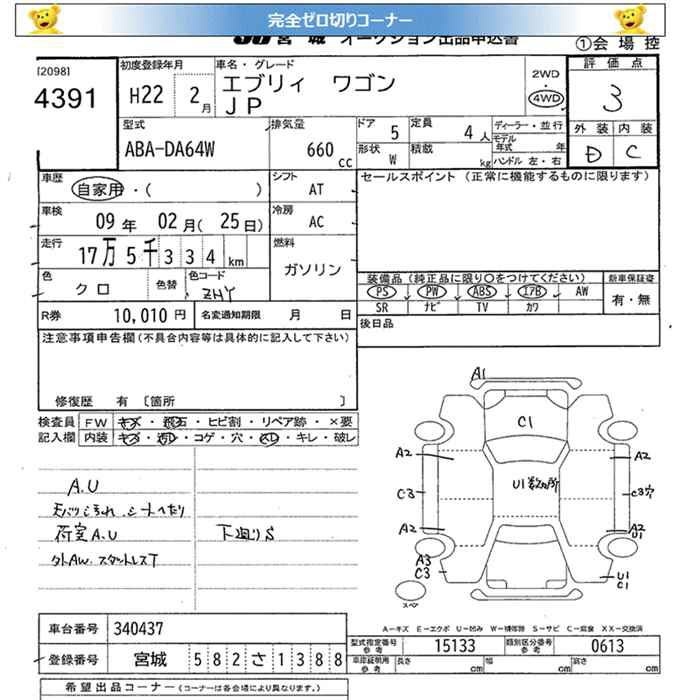 完全ゼロ切りコーナー
JU 宮 城 オークション出品申込書
①会場控
[2098]
4391
初度登録年月
H22 2月
車名・グレード
エブリィ ワゴン
JP
2WD
4WD
評価点
3
型式
ABA-DA64W
排気量
660 cc
ドア 5
定員 4人
形状 W
積載 kg
ディーラー・並行
モデル年式 年
ハンドル 左・右
外装 内装
D C
車歴
自家用・( )
シフト AT
セールスポイント (正常に機能するものに限ります)
車検
09年 02月(25日)
冷房 AC
走行
17万5千334km
燃料
ガソリン
色
クロ
色替
色コード
ZHY
装備品 (純正品に限り○をつけてください)
PS PW ABS エアB AW
SR ナビ TV カワ
新車保証書
有・無
R券 10,010円
名変通知期限 月 日
後日品
注意事項申告欄(不具合内容等は具体的に記入して下さい)
修復歴 有 〔箇所 〕
検査員 FW キズ・飛石・ヒビ割・リペア跡・×要
記入欄 内装 キズ・汚レ・コゲ・穴・スレ・キレ・破レ
A.U
シートへたり
荷室A.U
下廻りS
外AW. スタッドレスT
A1
C1
A2 A2
U1数ヶ所
C3 C3穴
A2 A2
U1
A3
C3
U1
C1
スペア
A-キズ E-エクボ U-凹み W-補修跡 S-サビ C-腐食 XX-交換済
車台番号 340437
型式指定番号 参考 15133
類別区分番号 参考 0613
登録番号 宮城 582さ1388
車庫証明用 参考 長さ cm 幅 cm 高さ cm
希望出品コーナー(コーナーは各会場により異なります。)